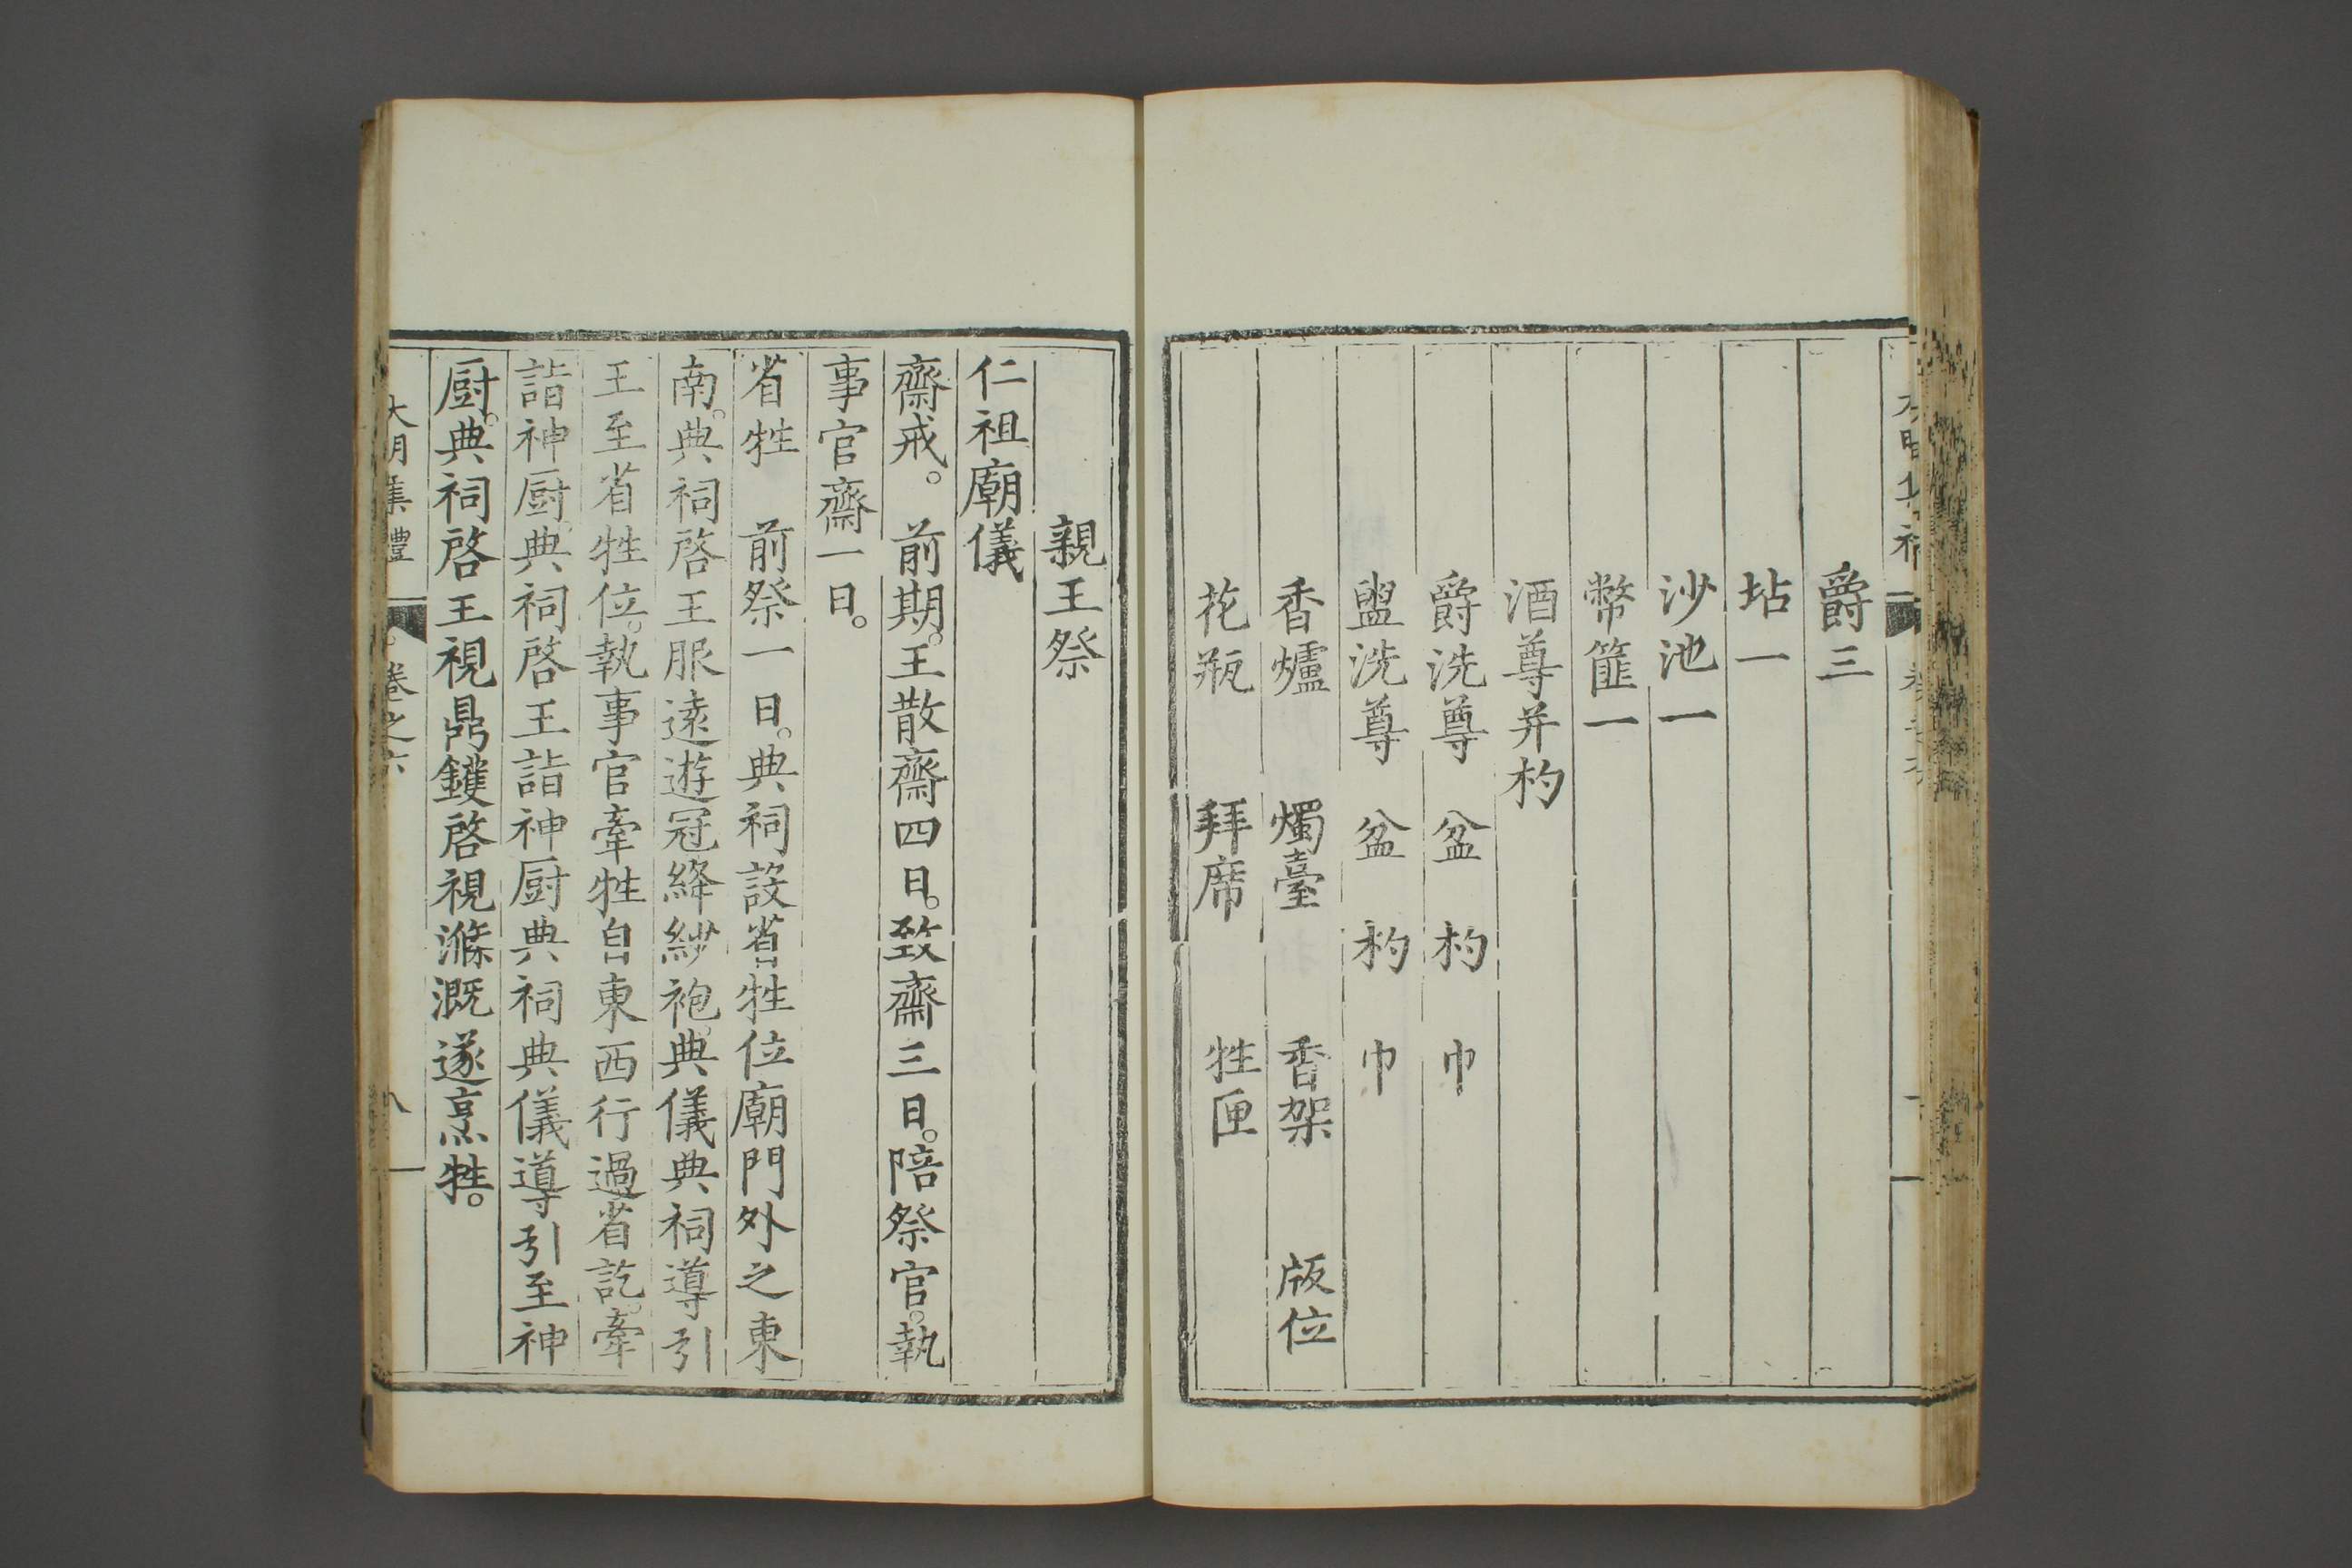 爵三
坫一
沙池一
幣篚一
酒尊并杓
爵洗尊 盆 杓 巾
盥洗尊 盆 杓 巾
香爐 燭臺 香架 版位
花瓶 拜席 牲匣
親王祭
仁祖廟儀
齋戒。 前期。王散齋四日。致齋三日。陪祭官。執
事官齋一日。
省牲 前祭一日。典祠設省牲位廟門外之東
南。典祠啓王服遠遊冠絳紗袍。典儀典祠導引
王至省牲位。執事官牽牲自東西行過省訖。牽
詣神厨。典祠啓王詣神厨典祠典儀導引至神
厨。典祠啓王視鼎鑊啓視滌溉遂烹牲。
大明集禮 卷之六 八